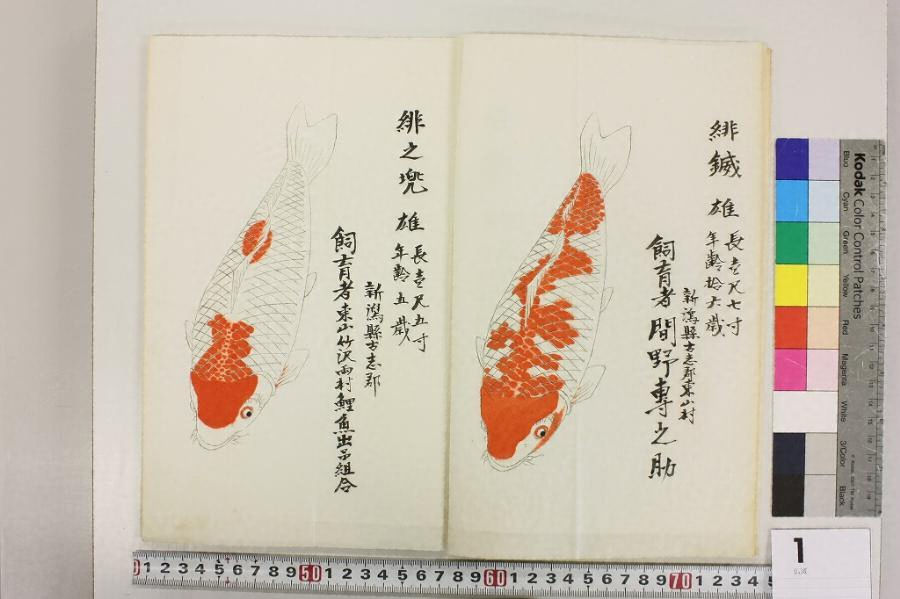 緋鏚 雄
長壱尺七寸
年齢拾六歳
新潟縣古志郡東山村
飼育者 間野専之助
緋之兜 雄
長壱尺五寸
年齢五歳
新潟縣古志郡
飼育者東山竹沢両村鯉魚出品組合
Kodak Color Control Patches
Blue Cyan Green Yellow Red Magenta White 3/Color Black
1 2 3 4 5 6 7 8 9 50 1 2 3 4 5 6 7 8 9 60 1 2 3 4 5 6 7 8 9 70 1 2 3 4 5
1